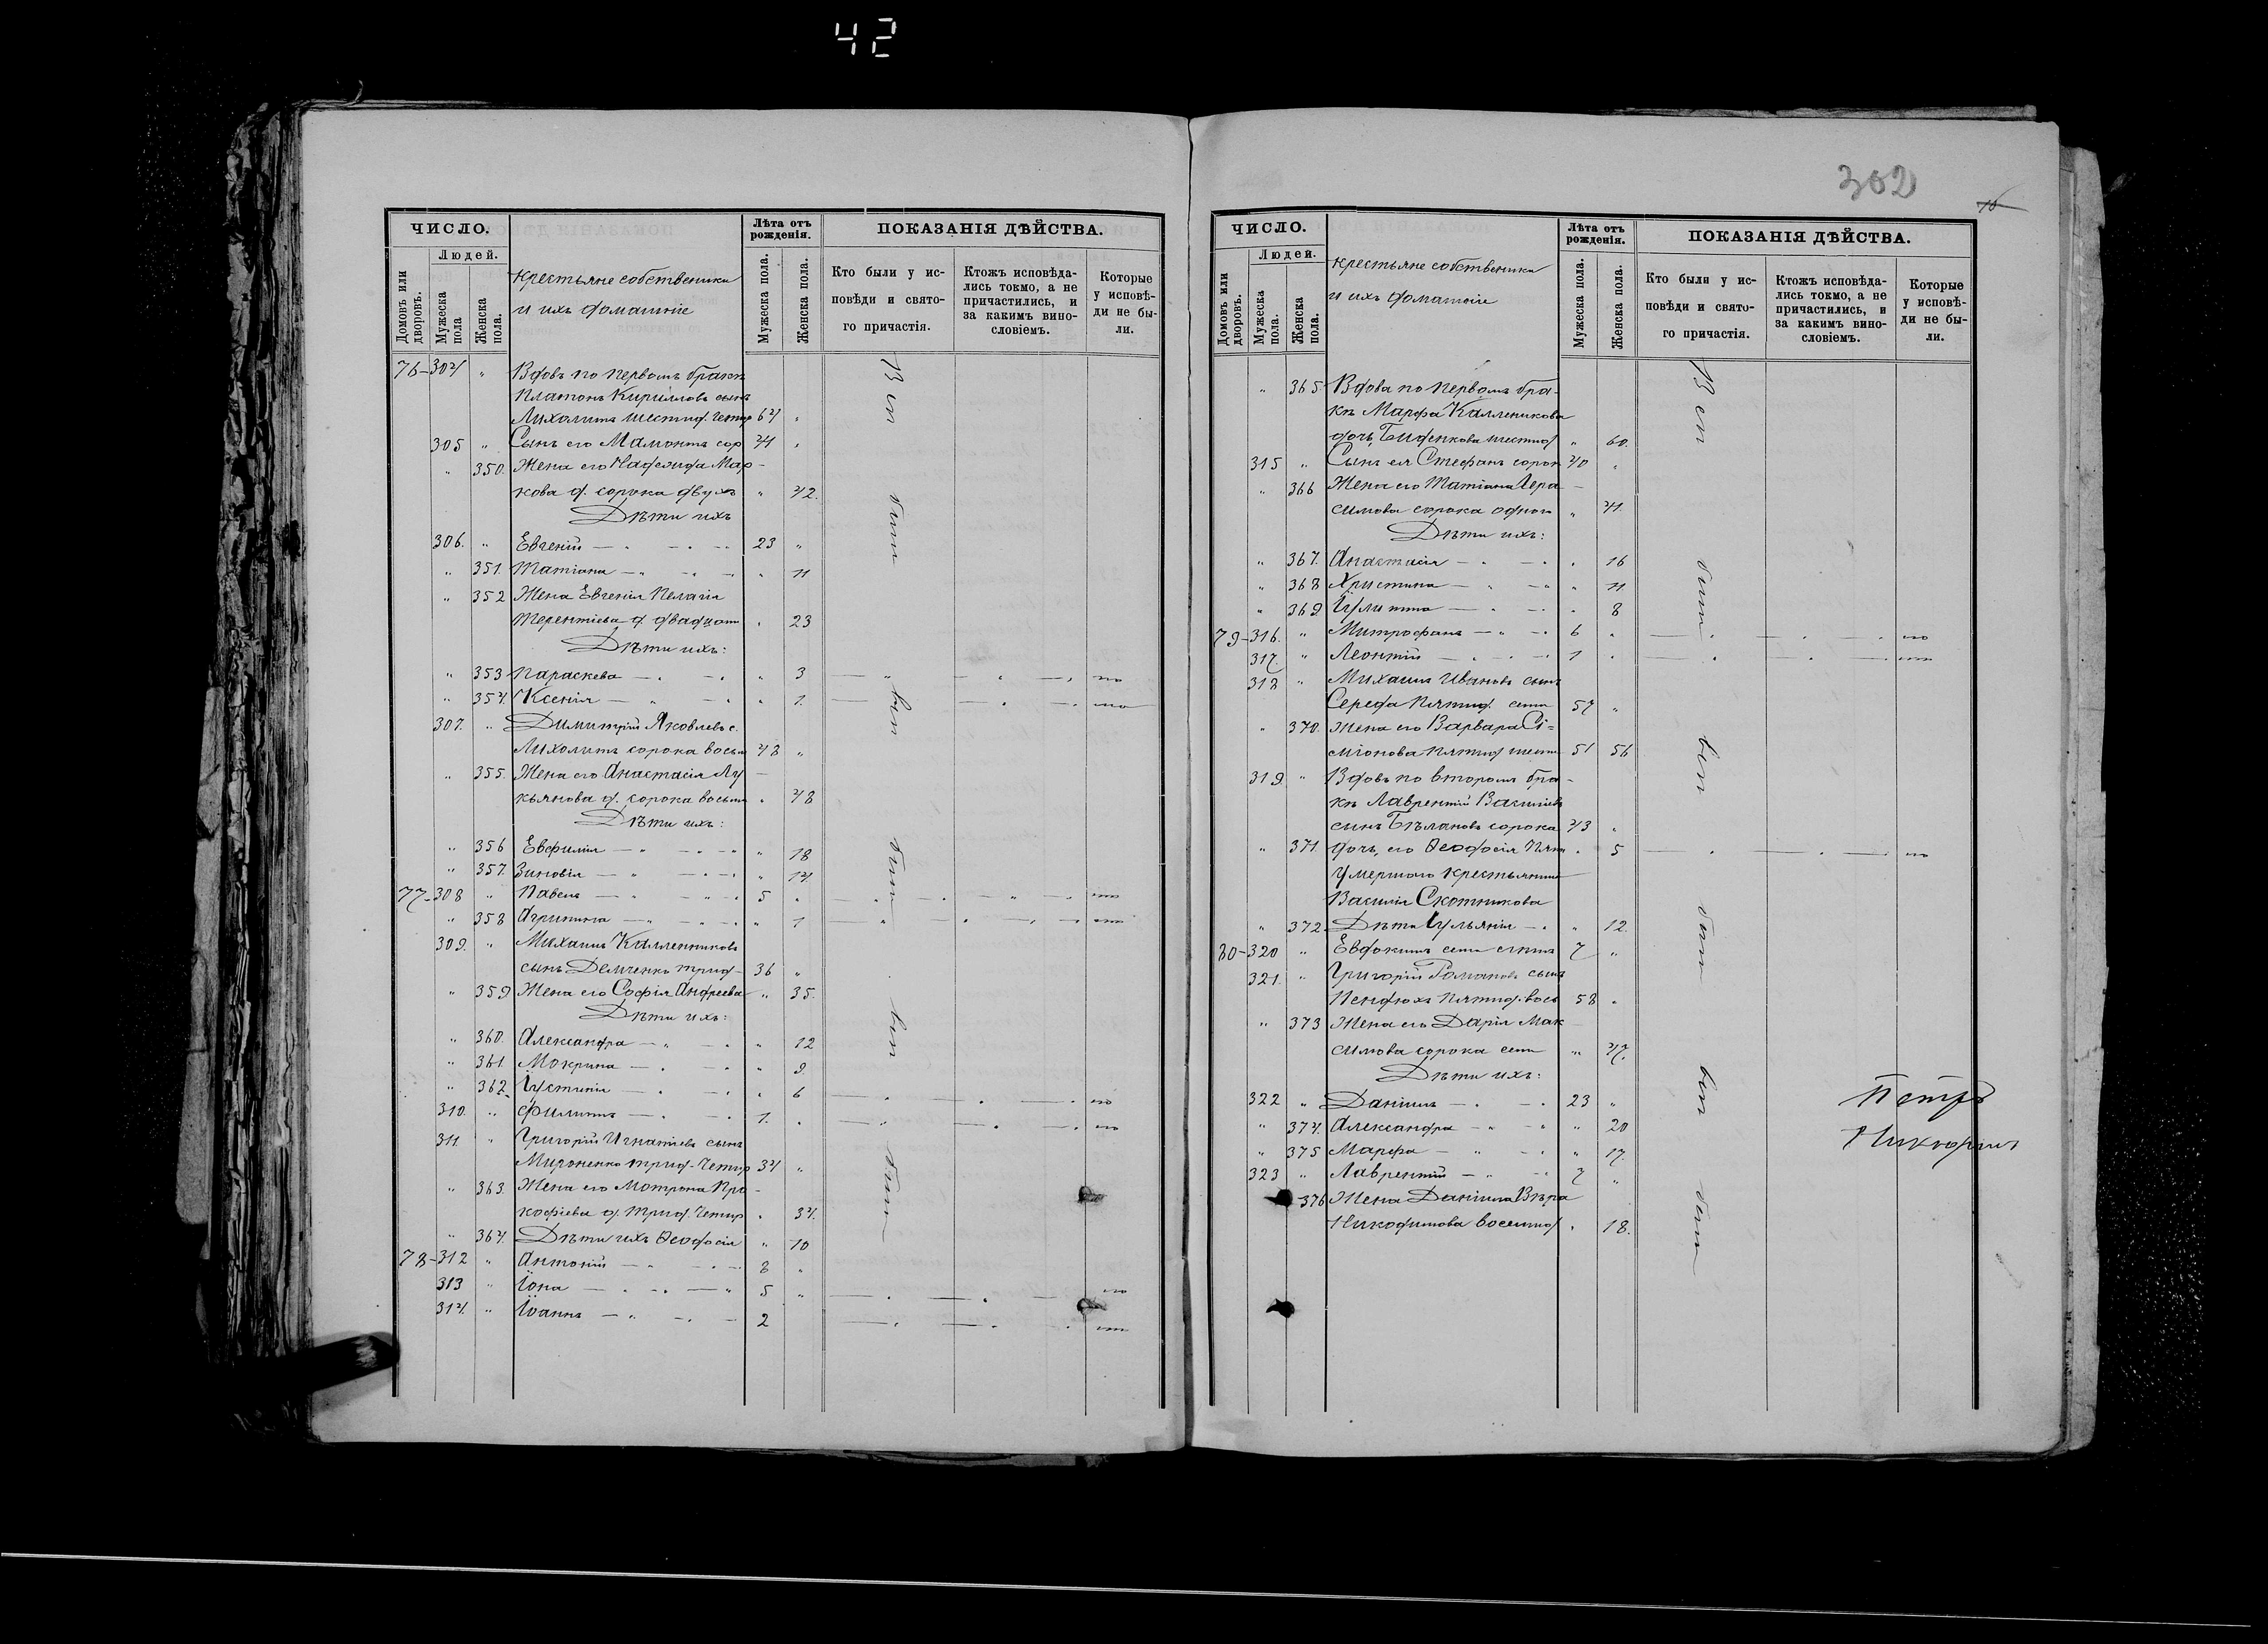 42
ЧИСЛО.
Людей.
Домовъ или дворовъ.
Мужеска пола
Женска пола.
Крестьяне собственики
и ихъ домашніе
Лѣта отъ рожденія.
Мужеска пола.
Женска пола.
ПОКАЗАНІЯ ДѢЙСТВА.
Кто были у ис-
повѣди и свято-
го причастія.
Ктожъ исповѣда-
лись токмо, а не
причастились, и
за какимъ вино-
словіемъ.
Которые
у исповѣ-
ди не бы-
ли.
76-304 " Вдовъ по первомъ бракѣ
Платонъ Кирилловъ сынъ
Лихолитъ шестид. четыр 64 "
305 " Сынъ его Мамонтъ сор 44 "
" 350. Жена его Надежда Мар-
кова д. сорока двухъ " 42.
Дѣти ихъ
306. " Евгеній 23 "
" 351. Татіана " 11
" 352 Жена Евгенія Пелагія
Терентіева д двадцати " 23
Дѣти ихъ:
" 353 Параскева " 3
" 354. Ксенія " 1.
307. " Димитрій Яковлевъ с.
Лихолитъ сорока восьм 48 "
" 355. Жена его Анастасія Лу-
кьянова д. сорока восьми " 48
Дѣти ихъ:
" 356 Евфимія " 18
" 357. Зиновія " 14.
77-308 " Павелъ 5 "
" 358 Агрипина " 1
309. " Михаилъ Каллениковъ
сынъ Демченко трид- 36 "
" 359 Жена его Софія Андреева " 35.
Дѣти ихъ:
" 360. Александра " 12
" 361 Мокрина " 9.
" 362 Іустинія " 6
310. " Филиппъ 1. "
311 " Григорій Игнатіевъ сынъ
Мироненко трид-четыр 34 "
" 363. Жена его Мотрона Про-
кофіева д. трид. четыр " 34.
" 364. Дѣти ихъ Ѳеодосія " 10
78-312 " Антоній 8 "
313 " Іона 5 "
314. " Іоаннъ 2
302
16
ЧИСЛО.
Людей.
Домовъ или дворовъ.
Мужеска пола.
Женска пола.
Крестьяне собственики
и ихъ домашніе
Лѣта отъ рожденія.
Мужеска пола.
Женска пола.
ПОКАЗАНІЯ ДѢЙСТВА.
Кто были у ис-
повѣди и свято-
го причастія.
Ктожъ исповѣда-
лись токмо, а не
причастились, и
за какимъ вино-
словіемъ.
Которые
у исповѣ-
ди не бы-
ли.
" 365 Вдова по первомъ бра-
кѣ Марфа Калленикова
дочь шестид " 60.
315 " Сынъ ея Стефанъ сорок 40 "
" 366 Жена его Татіана Гера-
симова сорока одного " 41.
Дѣти ихъ:
" 367. Анастасія " 16
" 368 Христина " 11.
" 369 Іулитта " 8
79-316. " Митрофанъ 6 "
317. " Леонтій 1 "
318 " Михаилъ Ивановъ сынъ
Середа пятид. семи 57 "
" 370. Жена его Варвара Сі=
міонова пятид шести 51 56
319. " Вдовъ по второмъ бра-
кѣ Лаврентій Василіевъ
сынъ Бѣлановъ сорока 43 "
" 371. Дочь его Ѳеодосія пят " 5
Умершаго крестьянина
Василія Скотникова
" 372. Дѣти Іульянія " 12.
80-320 " Евдокимъ семи слѣпъ 7 "
321. " Григорій Романовъ сынъ
Пендюхъ пятид. вось 58 "
" 373 Жена его Дарія Мак
симова сорока семи " 47.
Дѣти ихъ:
322 " Даніилъ 23 "
" 374. Александра " 20
" 375 Марфа " 17.
323 " Лаврентій 7 "
376 Жена Даніила Вѣра
Никодимова восемнад " 18.
Петръ